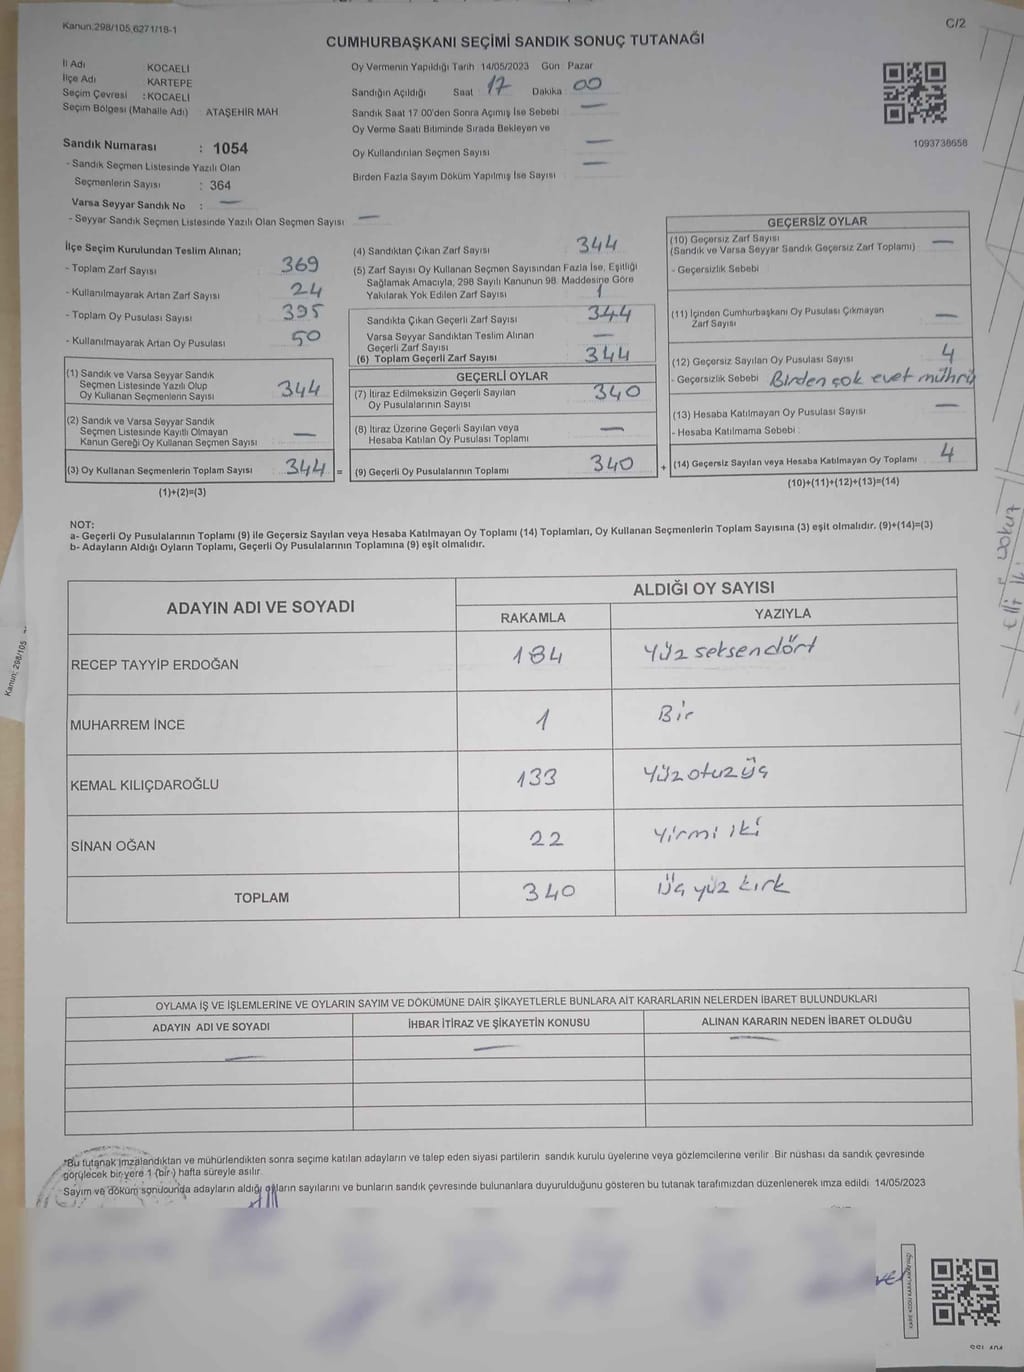 Kanun:298/105,6271/18-1
C/2
CUMHURBAŞKANI SEÇİMİ SANDIK SONUÇ TUTANAĞI
İl Adı KOCAELİ
İlçe Adı KARTEPE
Seçim Çevresi : KOCAELİ
Seçim Bölgesi (Mahalle Adı) ATAŞEHİR MAH
Sandık Numarası : 1054
- Sandık Seçmen Listesinde Yazılı Olan
Seçmenlerin Sayısı : 364
Varsa Seyyar Sandık No : —
- Seyyar Sandık Seçmen Listesinde Yazılı Olan Seçmen Sayısı —
Oy Vermenin Yapıldığı Tarih 14/05/2023 Gün Pazar
Sandığın Açıldığı Saat 17 Dakika 00
Sandık Saat 17 00'den Sonra Açımış İse Sebebi —
Oy Verme Saati Bitiminde Sırada Bekleyen ve
Oy Kullandırılan Seçmen Sayısı —
Birden Fazla Sayım Döküm Yapılmış İse Sayısı —
1093738658
İlçe Seçim Kurulundan Teslim Alınan;
- Toplam Zarf Sayısı 369
- Kullanılmayarak Artan Zarf Sayısı 24
- Toplam Oy Pusulası Sayısı 395
- Kullanılmayarak Artan Oy Pusulası 50
(1) Sandık ve Varsa Seyyar Sandık
Seçmen Listesinde Yazılı Olup
Oy Kullanan Seçmenlerin Sayısı 344
(2) Sandık ve Varsa Seyyar Sandık
Seçmen Listesinde Kayıtlı Olmayan
Kanun Gereği Oy Kullanan Seçmen Sayısı —
(3) Oy Kullanan Seçmenlerin Toplam Sayısı 344 =
(1)+(2)=(3)
(4) Sandıktan Çıkan Zarf Sayısı 344
(5) Zarf Sayısı Oy Kullanan Seçmen Sayısından Fazla İse, Eşitliği
Sağlamak Amacıyla, 298 Sayılı Kanunun 98. Maddesine Göre
Yakılarak Yok Edilen Zarf Sayısı 1
Sandıkta Çıkan Geçerli Zarf Sayısı 344
Varsa Seyyar Sandıktan Teslim Alınan
Geçerli Zarf Sayısı —
(6) Toplam Geçerli Zarf Sayısı 344
GEÇERLİ OYLAR
(7) İtiraz Edilmeksizin Geçerli Sayılan
Oy Pusulalarının Sayısı 340
(8) İtiraz Üzerine Geçerli Sayılan veya
Hesaba Katılan Oy Pusulası Toplamı —
(9) Geçerli Oy Pusulalarının Toplamı 340 +
GEÇERSİZ OYLAR
(10) Geçersiz Zarf Sayısı —
(Sandık ve Varsa Seyyar Sandık Geçersiz Zarf Toplamı)
- Geçersizlik Sebebi
(11) İçinden Cumhurbaşkanı Oy Pusulası Çıkmayan
Zarf Sayısı —
(12) Geçersiz Sayılan Oy Pusulası Sayısı 4
- Geçersizlik Sebebi Birden çok evet mührü
(13) Hesaba Katılmayan Oy Pusulası Sayısı —
- Hesaba Katılmama Sebebi :
(14) Geçersiz Sayılan veya Hesaba Katılmayan Oy Toplamı 4
(10)+(11)+(12)+(13)=(14)
NOT:
a- Geçerli Oy Pusulalarının Toplamı (9) ile Geçersiz Sayılan veya Hesaba Katılmayan Oy Toplamı (14) Toplamları, Oy Kullanan Seçmenlerin Toplam Sayısına (3) eşit olmalıdır. (9)+(14)=(3)
b- Adayların Aldığı Oyların Toplamı, Geçerli Oy Pusulalarının Toplamına (9) eşit olmalıdır.
ADAYIN ADI VE SOYADI
ALDIĞI OY SAYISI
RAKAMLA YAZIYLA
RECEP TAYYİP ERDOĞAN 184 Yüz seksendört
MUHARREM İNCE 1 Bir
KEMAL KILIÇDAROĞLU 133 Yüzotuzüç
SİNAN OĞAN 22 Yirmi iki
TOPLAM 340 Üç yüz kırk
OYLAMA İŞ VE İŞLEMLERİNE VE OYLARIN SAYIM VE DÖKÜMÜNE DAİR ŞİKAYETLERLE BUNLARA AİT KARARLARIN NELERDEN İBARET BULUNDUKLARI
ADAYIN ADI VE SOYADI İHBAR İTİRAZ VE ŞİKAYETİN KONUSU ALINAN KARARIN NEDEN İBARET OLDUĞU
— — —
*Bu tutanak imzalandıktan ve mühürlendikten sonra seçime katılan adayların ve talep eden siyasi partilerin sandık kurulu üyelerine veya gözlemcilerine verilir. Bir nüshası da sandık çevresinde
görülecek bir yere 1 (bir) hafta süreyle asılır.
Sayım ve döküm sonucunda adayların aldığı oyların sayılarını ve bunların sandık çevresinde bulunanlara duyurulduğunu gösteren bu tutanak tarafımızdan düzenlenerek imza edildi 14/05/2023
Kanun: 298/105